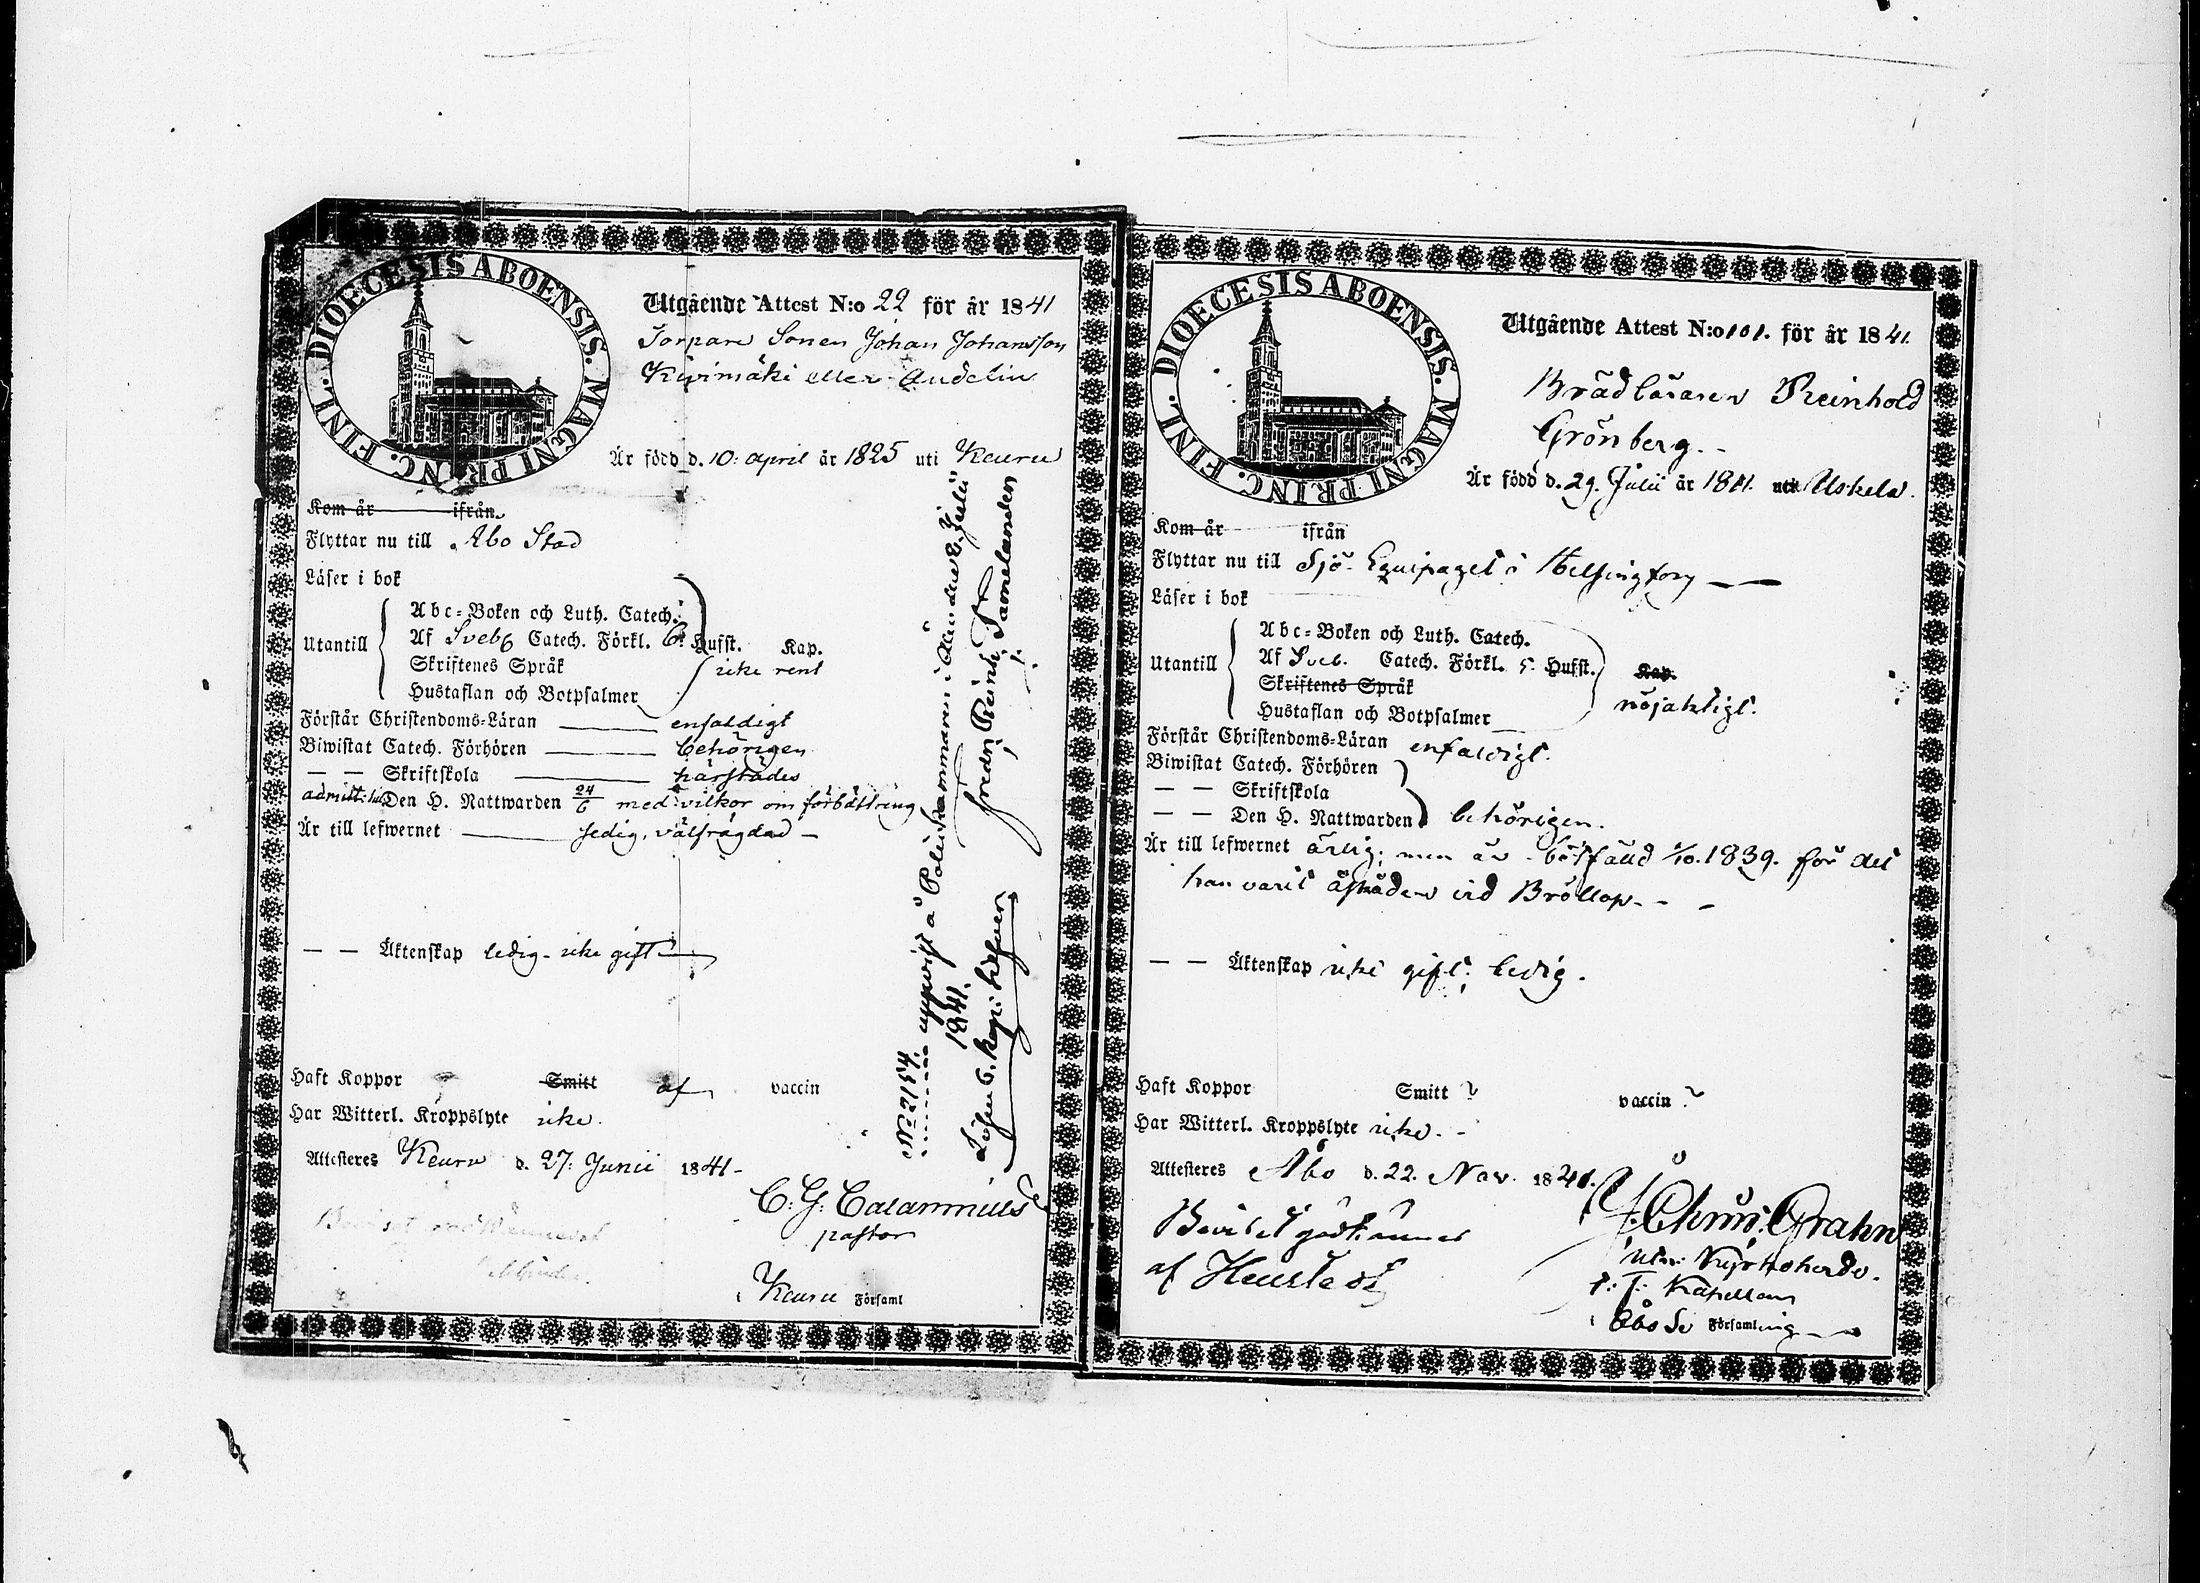 DIOECESIS ABOENSIS. MAGNI PRINC. FINL.
Utgående Attest N:o 22 för år 1841
Torpare Sonen Johan Johansson
Kivimäki eller Audelin
Är född d. 10: april år 1825 uti Keuru
Kom år ifrån
Flyttar nu till Abo Stad
Läser i bok
Utantill
Abc-Boken och Luth. Catech.
Af Sveb Catech. Förkl. 6: Hufst. Kap.
Skriftenes Språk icke rent
Hustaflan och Botpsalmer
Förstår Christendoms-Läran enfaldigt
Biwistat Catech. Förhören behörigen
— — Skriftskola härstädes
Den H. Nattwarden 24/6 med vilkor om förbättring
Är till lefwernet sedig, välfrägdad —
— — Äktenskap ledig - icke gift
Haft Koppor Smitt af vaccin
Har Witterl. Kroppslyte icke.
Attesteres Keuru d. 27: Junii 1841-
C: G: Calamnius
pastor
Keuru Församl
N: 2154, uppvist å Polis kammaren i Åbo den 2 Julii
1841.
DIOECESIS ABOENSIS. MAGNI PRINC. FINL.
Utgående Attest N:o 101. för år 1841.
Reinhold
Grönberg.-
Är född d. 29. Julii år 1811. uti Uskela.
Kom år ifrån
Flyttar nu till Sjö-Equipaget i Helsingfors — —
Läser i bok
Utantill
Abc-Boken och Luth. Catech.
Af Sveb. Catech. Förkl. 5. Hufst. Kap.
Skriftenes Språk nöjaktigt.
Hustaflan och Botpsalmer
Förstår Christendoms-Läran enfaldigt.
Biwistat Catech. Förhören
— — Skriftskola
— — Den H. Nattwarden behörigen.
Är till lefwernet ärlig; men är bötfälld 1/10. 1839. för det
han varit åskådare vid Bröllop. - -
— — Äktenskap icke gift; ledig.
Haft Koppor Smitt ? vaccin ?
Har Witterl. Kroppslyte icke. -
Attesteres Åbo d. 22. Nov. 1841.
J: Chrn: Grahn
Beviset godkännes
af Heurlin
Kapellan
Åbo Sv Församling